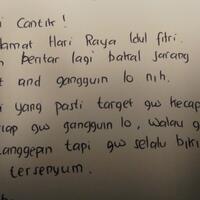 i Cantik!
lamat Hari Raya Idul fitri.
bentar lagi bakal jarang
t and gangguin lo nih.
i yang pasti target gw kecap
iap gw gangguin lo, walau g
anggepin tapi gw selalu biki
tersenyum.